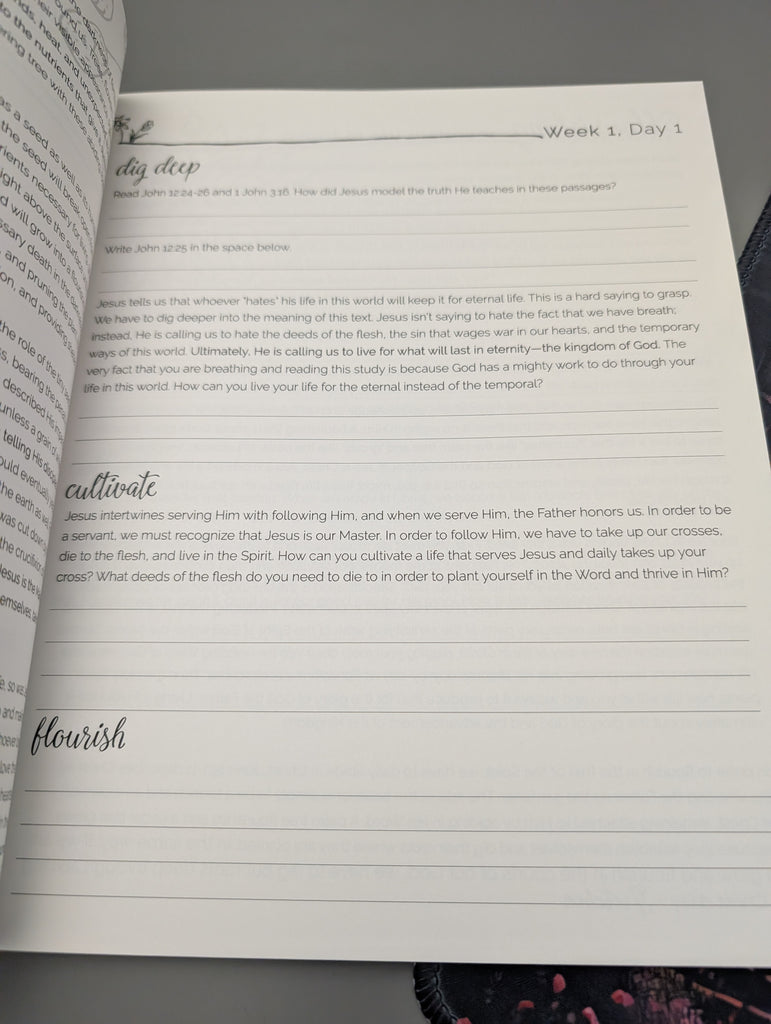 as a seed as well as
the seed will break
ight above the
d will grow into a
ssary death in the
and pruning the
on, and providing
the role of the
s, bearing the
described His
unless a grain of
telling His
ould eventually
the earth as
was cut down
the crucifixion
Jesus is the
emselves
Week 1, Day 1
dig deep
Read John 12:24-26 and 1 John 3:16. How did Jesus model the truth He teaches in these passages?
Write John 12:25 in the space below.
Jesus tells us that whoever "hates" his life in this world will keep it for eternal life. This is a hard saying to grasp.
We have to dig deeper into the meaning of this text. Jesus isn't saying to hate the fact that we have breath;
instead, He is calling us to hate the deeds of the flesh, the sin that wages war in our hearts, and the temporary
ways of this world. Ultimately, He is calling us to live for what will last in eternity—the kingdom of God. The
very fact that you are breathing and reading this study is because God has a mighty work to do through your
life in this world. How can you live your life for the eternal instead of the temporal?
cultivate
Jesus intertwines serving Him with following Him, and when we serve Him, the Father honors us. In order to be
a servant, we must recognize that Jesus is our Master. In order to follow Him, we have to take up our crosses,
die to the flesh, and live in the Spirit. How can you cultivate a life that serves Jesus and daily takes up your
cross? What deeds of the flesh do you need to die to in order to plant yourself in the Word and thrive in Him?
flourish